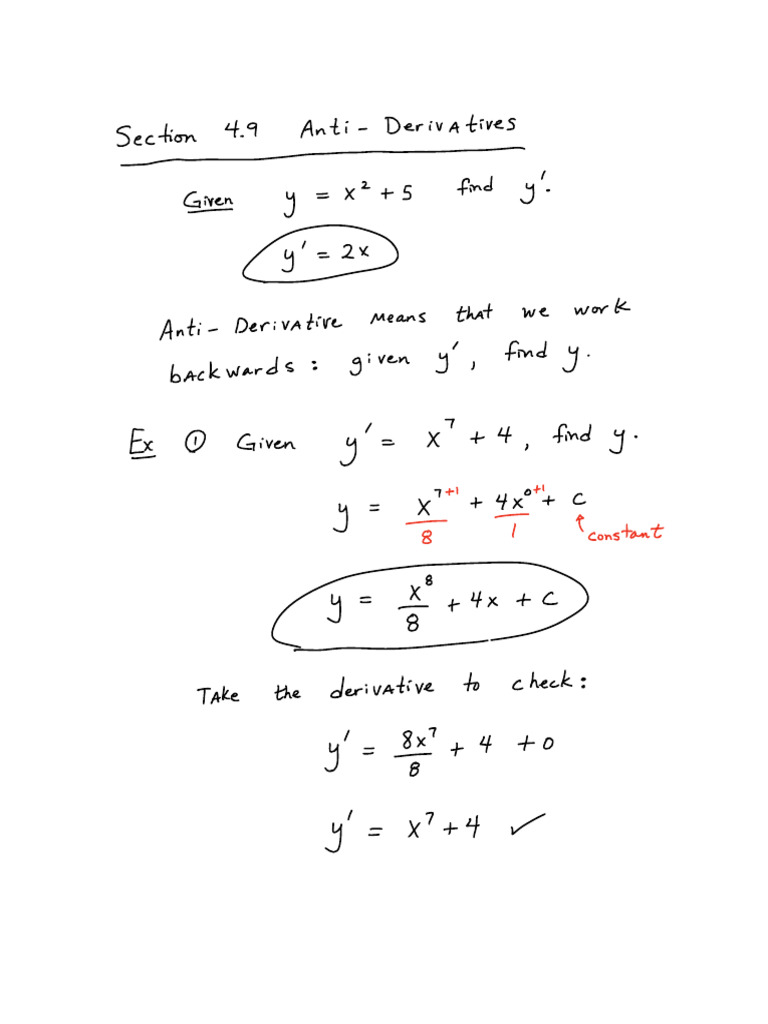 Section 4.9 Anti-Derivatives
Given y = x² + 5 find y'.
y' = 2x
Anti-Derivative means that we work
backwards: given y', find y.
Ex ① Given y' = x⁷ + 4, find y.
y = x⁷⁺¹/8 + 4x⁰⁺¹/1 + C
↑ constant
y = x⁸/8 + 4x + C
Take the derivative to check:
y' = 8x⁷/8 + 4 + 0
y' = x⁷ + 4 ✓